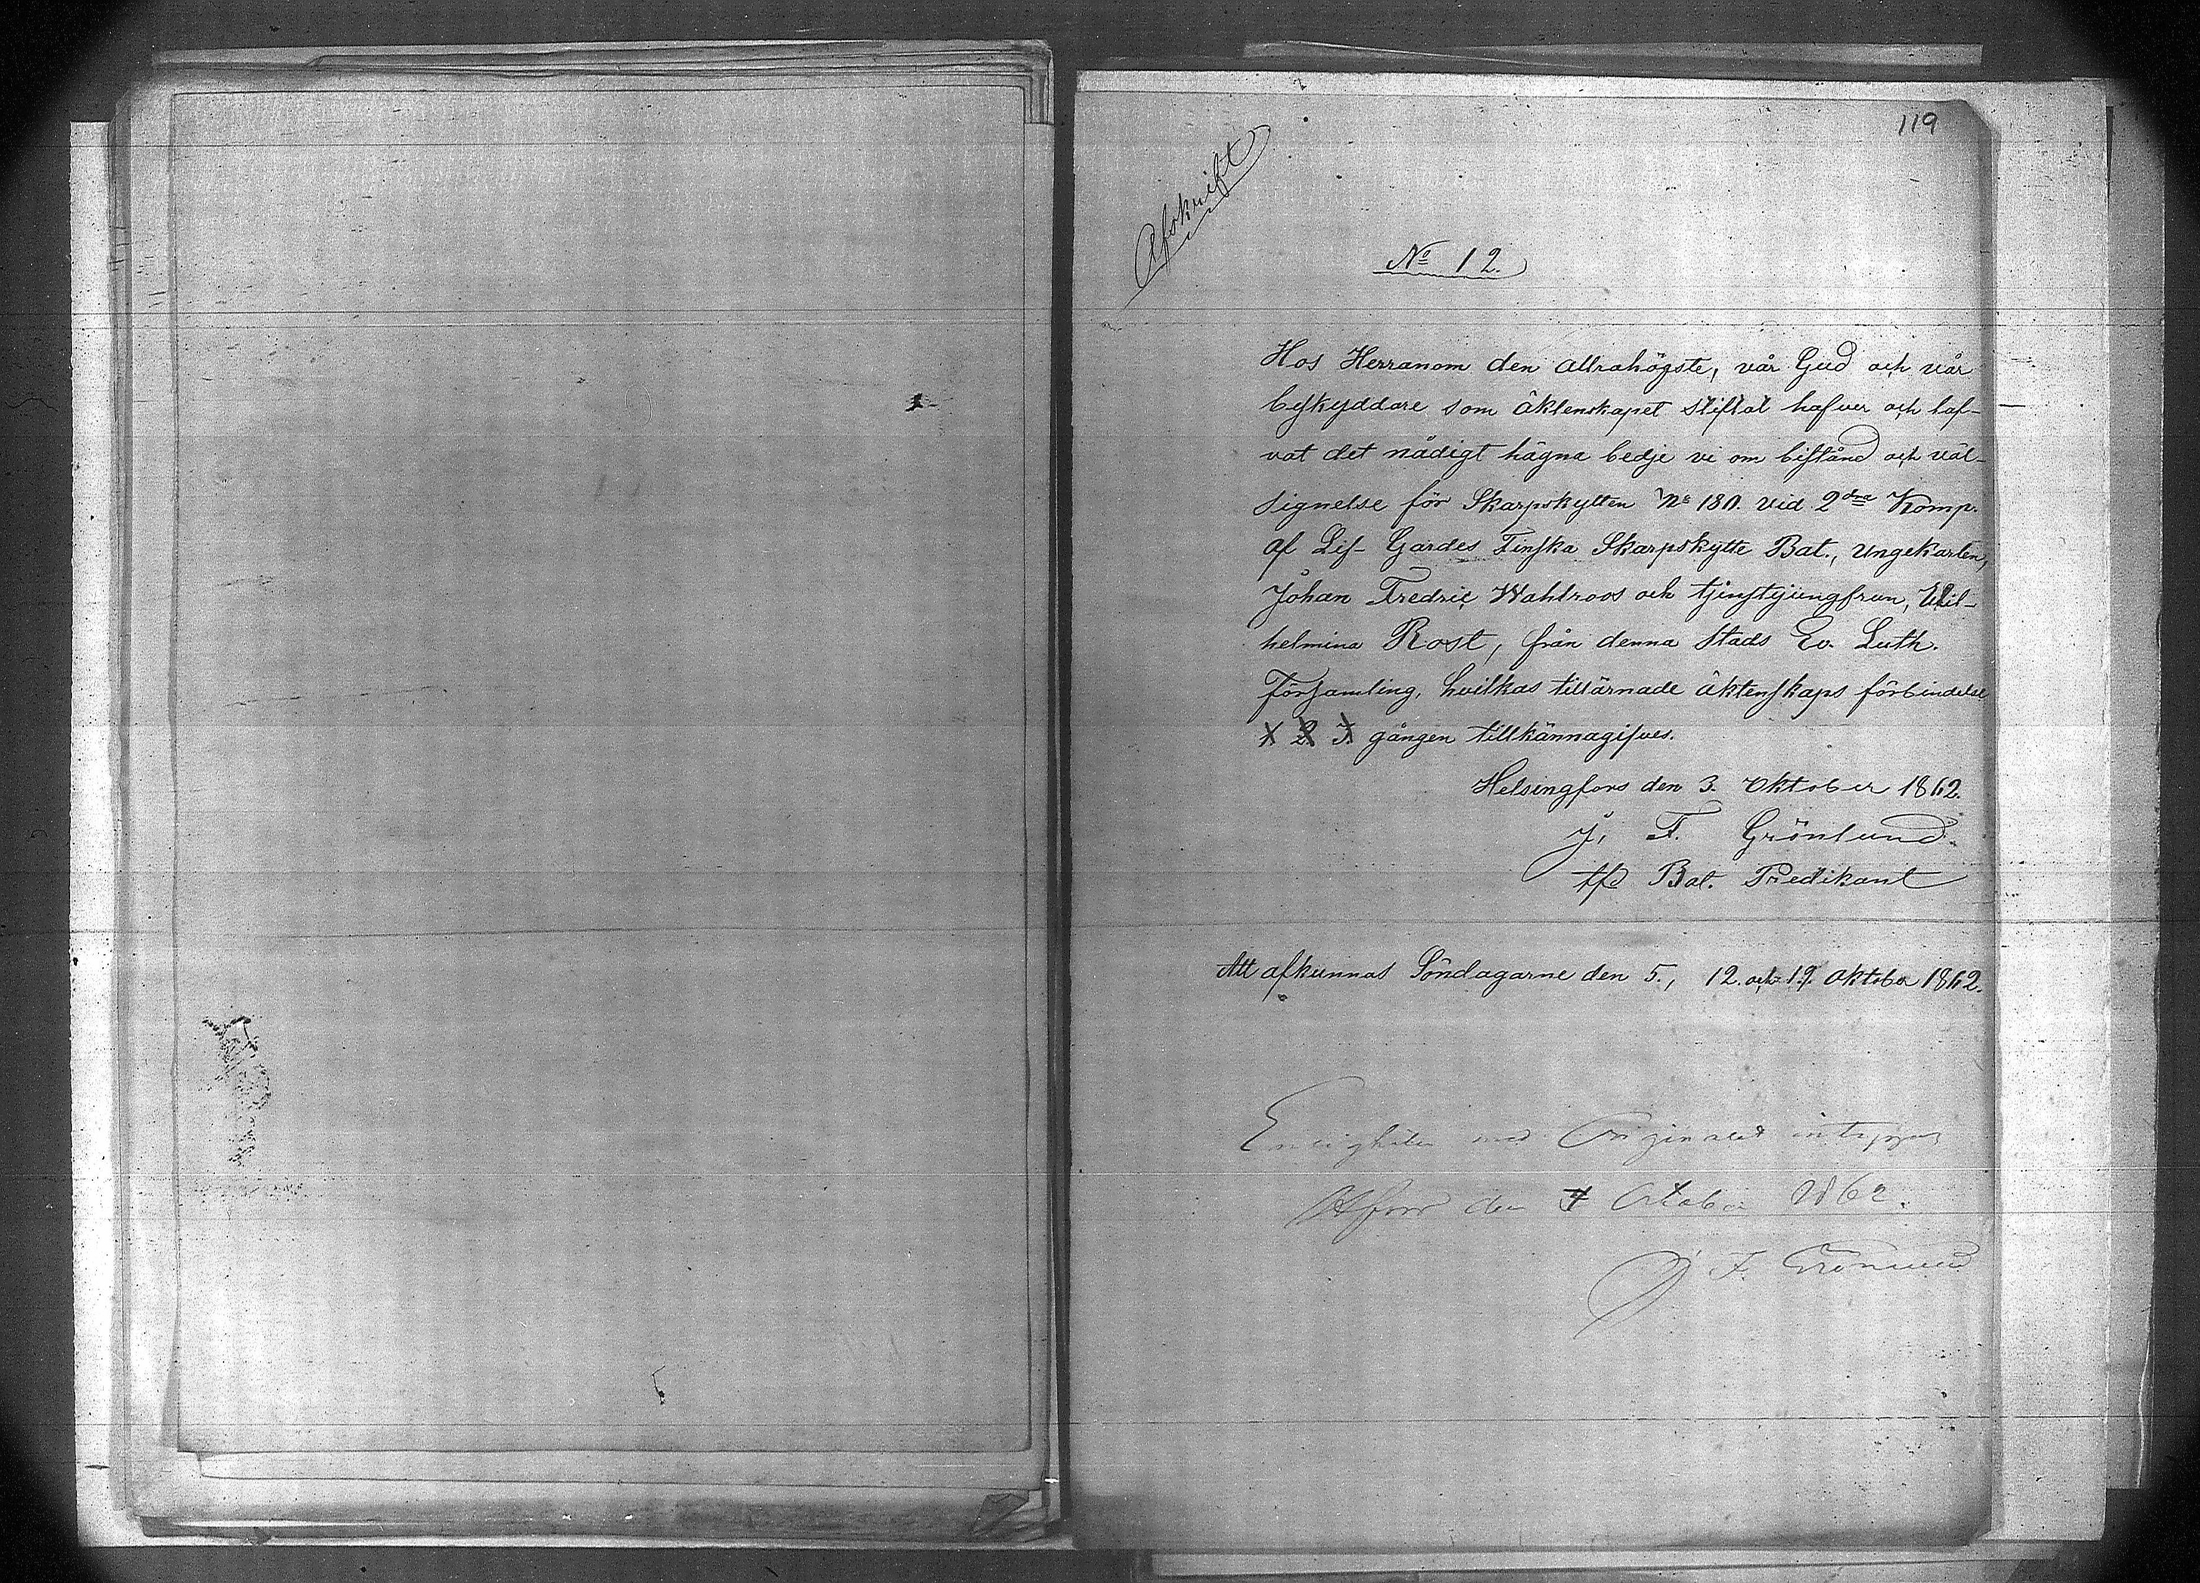 119
Afskrift
No 12.
Hos Herranom den Allrahögste, vår Gud och vår
beskyddare som äktenskapet stiftat hafver och laf-
vat det nådigt hägna bedje vi om bistånd och väl-
signelse för Skarpskytten No 180. vid 2dra Komp.
af Lif-Gardes Finska Skarpskytte Bat., ungekarlen,
Johan Fredric Wahlroos och tjenstjungfrun, Wil-
helmina Rost, från denna Stads Ev. Luth.
Församling, hvilkas tillärnade äktenskaps förbindelse
1. 2. 3. gången tillkännagifves.
Helsingfors den 3. Oktober 1862.
J. F. Grönlund.
tfd Bat. Predikant
Att afkunnas Söndagarne den 5., 12. och 19. Oktober 1862.
Enligheten med Originalet intygas
H:fors den 4 October 1862.
J. F. Grönlund